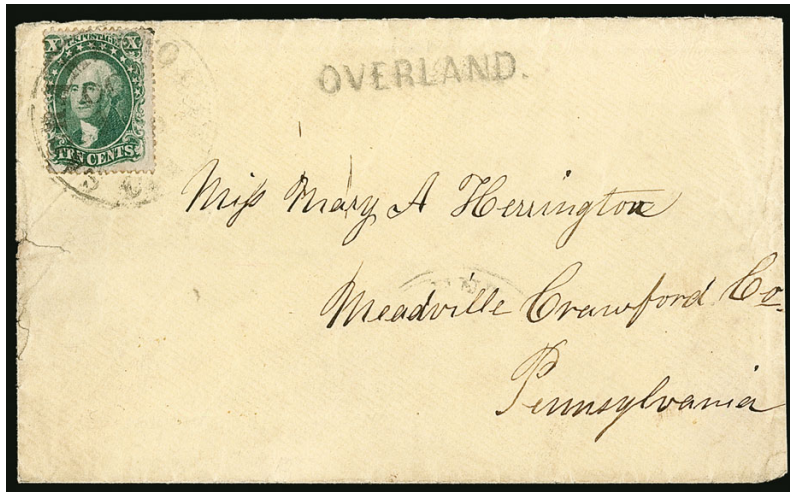 X U.S. POSTAGE X
TEN CENTS.
OVERLAND.
Miss Mary A Herrington
Meadville Crawford Co.
Pennsylvania